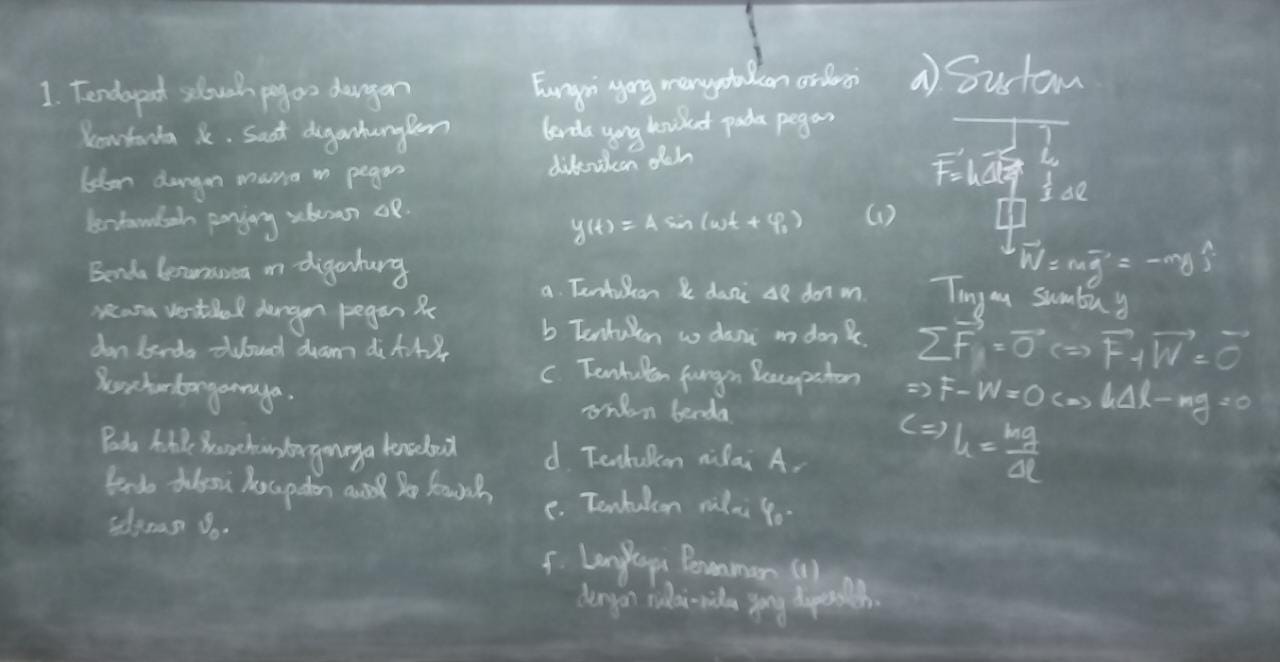 1. Terdapat sebuah pegas dengan
konstanta k. Saat digantungkan
beban dengan massa m pegas
bertambah panjang sebesar Δl.
Benda bermassa m digantung
secara vertikal dengan pegas k
dan benda dibuat diam di titik
kesetimbangannya.
Pada titik kesetimbangannya tersebut
benda diberi kecepatan awal ke bawah
sebesar v₀.
Fungsi yang menyatakan osilasi
benda yang terikat pada pegas
diberikan oleh
y(t) = A sin (ωt + φ₀) (1)
a. Tentukan k dari Δl dan m.
b Tentukan ω dari m dan k.
c. Tentukan fungsi kecepatan
osilasi benda
d. Tentukan nilai A.
e. Tentukan nilai φ₀.
f. Lengkapi Persamaan (1)
dengan nilai-nilai yang diperoleh.
a). Sistem
F⃗ = kΔl
Δl
W⃗ = mg⃗ = -mg ĵ
Tinjau sumbu y
∑F⃗ = 0⃗ <=> F⃗ + W⃗ = 0⃗
=> F - W = 0 <=> kΔl - mg = 0
<=> k = mg/Δl